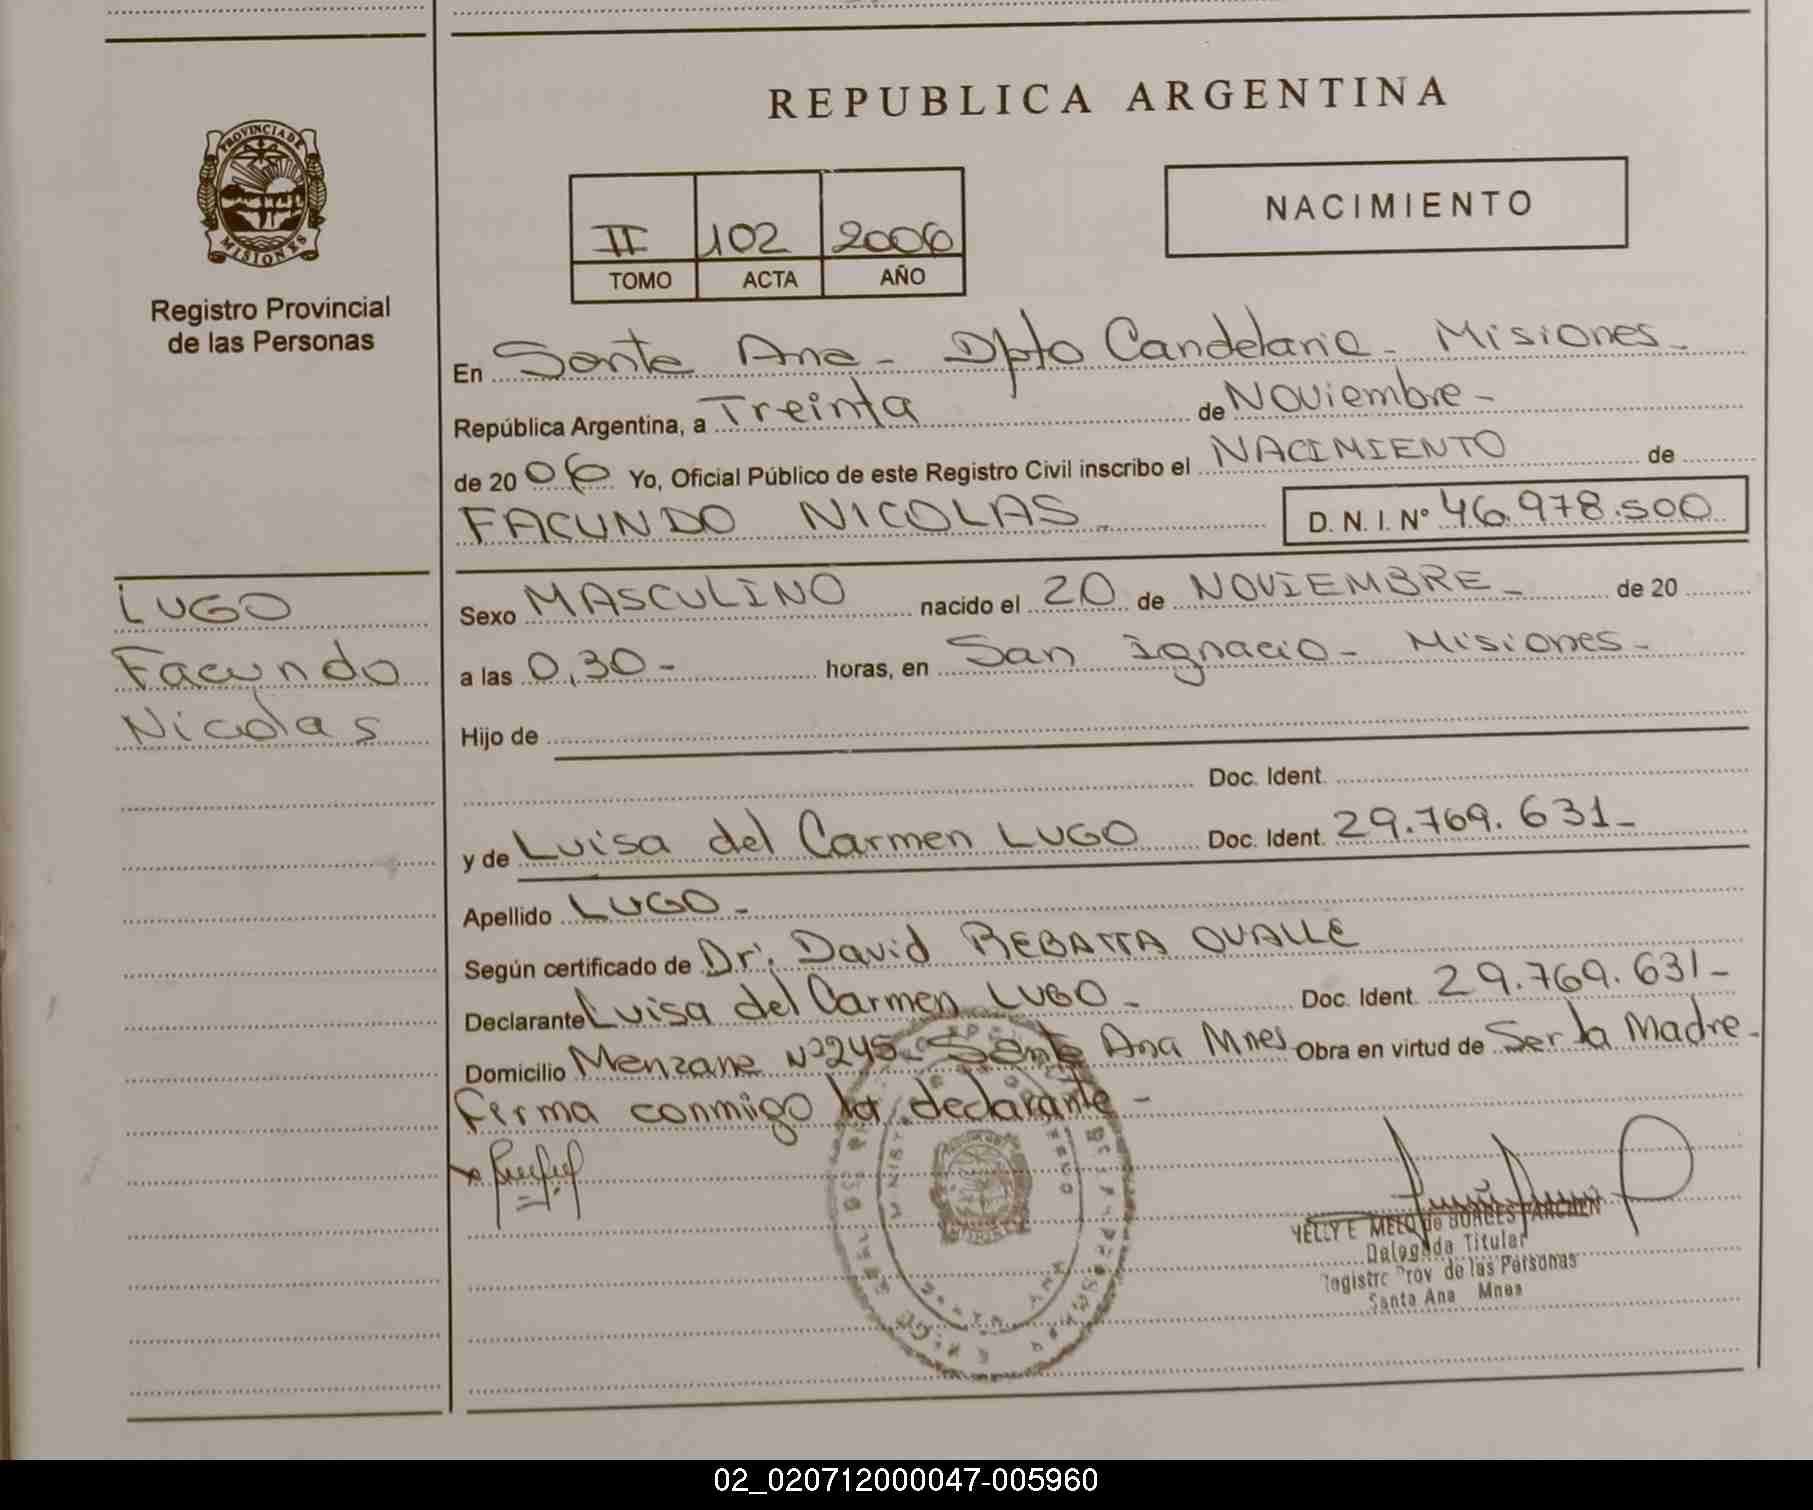 REPUBLICA ARGENTINA
PROVINCIA DE
MISIONES
Registro Provincial
de las Personas
II 102 2006
TOMO ACTA AÑO
NACIMIENTO
En Santa Ana - Dpto Candelaria - Misiones -
República Argentina, a Treinta de Noviembre -
de 2006 Yo, Oficial Público de este Registro Civil inscribo el NACIMIENTO de
FACUNDO NICOLAS - D. N. I. Nº 46.978.500
LUGO
Facundo
Nicolas
Sexo MASCULINO nacido el 20 de NOVIEMBRE - de 20
a las 0,30 - horas, en San Ignacio - Misiones -
Hijo de
Doc. Ident.
y de Luisa del Carmen LUGO Doc. Ident. 29.769.631 -
Apellido LUGO -
Según certificado de Dr. David OVALLE
Declarante Luisa del Carmen LUGO - Doc. Ident. 29.769.631 -
Domicilio Manzana Nº 245 - Santa Ana Mnes Obra en virtud de Ser la Madre -
Firma conmigo la declarante -
MELO de BORGES
Delegada Titular
Registro Prov de las Personas
Santa Ana Mnes
02_020712000047-005960